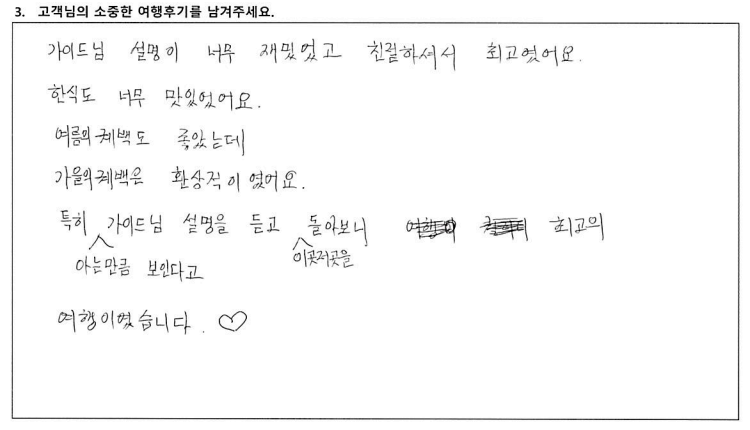 3. 고객님의 소중한 여행후기를 남겨주세요.
가이드님 설명이 너무 재밌었고 친절하셔서 최고였어요.
한식도 너무 맛있었어요.
여름의 퀘백도 좋았는데
가을의 퀘백은 환상적이였어요.
특히 가이드님 설명을 듣고 돌아보니 최고의
아는만큼 보인다고 이곳저곳을
여행이였습니다. ♡